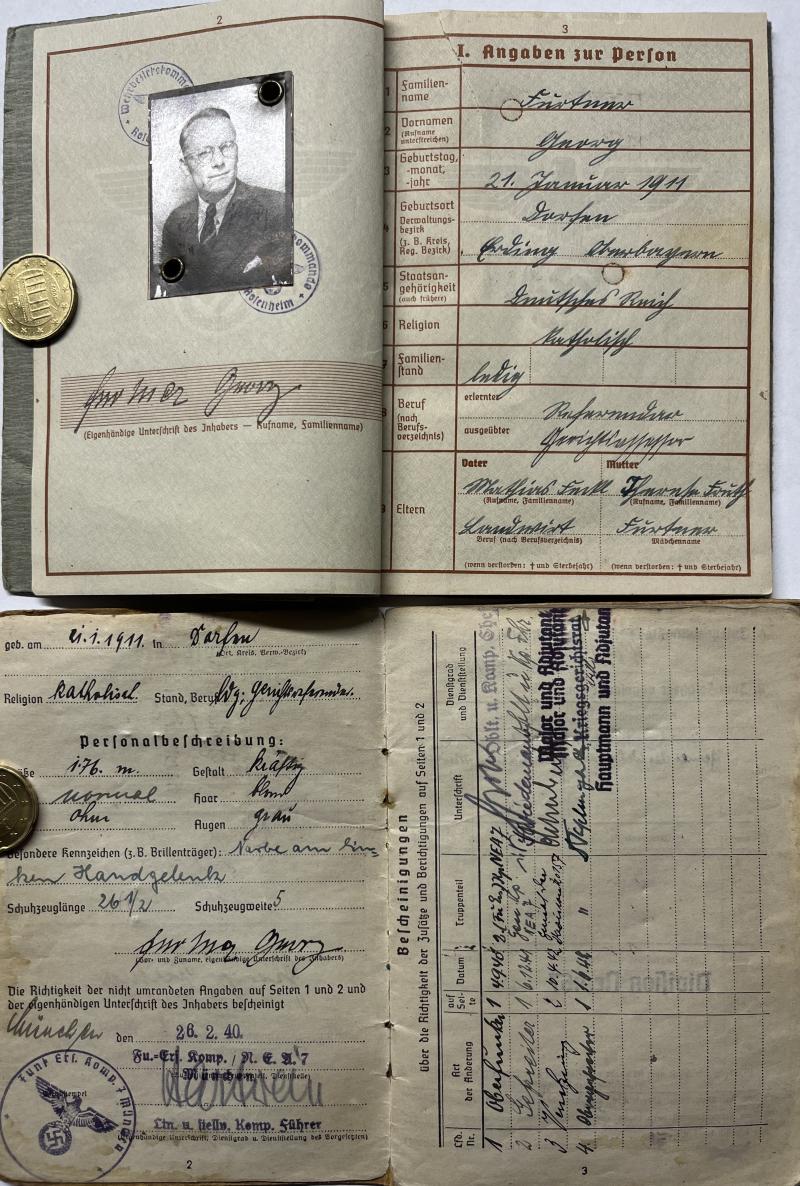 2
Wehrbezirkskommando
Rosenheim
Furtner Georg
(Eigenhändige Unterschrift des Inhabers — Rufname, Familienname)
3
I. Angaben zur Person
1 Familien-
name
Furtner
2 Vornamen
(Rufname
unterstreichen)
Georg
3 Geburtstag,
-monat,
-jahr
21. Januar 1911
4 Geburtsort
Verwaltungs-
bezirk
(z. B. Kreis,
Reg. Bezirk)
Dorfen
Erding Oberbayern
5 Staatsan-
gehörigkeit
(auch frühere)
Deutsches Reich
6 Religion
katholisch
7 Familien-
stand
ledig
8 Beruf
(nach
Berufs-
verzeichnis)
erlernter
Referendar
ausgeübter
Gerichtsassessor
9 Eltern
Vater Mutter
Mathias Therese
(Rufname, Familienname) (Rufname, Familienname)
Landwirt Furtner
Beruf (nach Berufsverzeichnis) Mädchenname
(wenn verstorben: † und Sterbejahr) (wenn verstorben: † und Sterbejahr)
geb. am 21.1.1911 in Dorfen
(Ort, Kreis, Verw.-Bezirk)
Religion katholisch Stand, Beruf ldg.
Personalbeschreibung:
176 m. Gestalt kräftig
normal Haar blond
ohne Augen grau
Besondere Kennzeichen (z. B. Brillenträger): Narbe am lin-
ken Handgelenk
Schuhzeuglänge 26 1/2 Schuhzeugweite 5
Furtner Georg
(Vor- und Zuname, eigenhändige Unterschrift des Inhabers)
Die Richtigkeit der nicht umrandeten Angaben auf Seiten 1 und 2 und
der eigenhändigen Unterschrift des Inhabers bescheinigt
München den 26. 2. 40.
Fu.-Ers. Komp. / N. E. A. 7
München
Ltn. u. stellv. Komp. Führer
(Eigenhändige Unterschrift, Dienstgrad u. Dienststellung des Vorgesetzten)
Funk Ers. Komp. 7 München
2
Bescheinigungen
über die Richtigkeit der Zusätze und Berichtigungen auf Seiten 1 und 2
Lfd. Nr.
Art der Änderung
auf Sei-te
Datum
Truppenteil
Unterschrift
Dienstgrad und Dienststellung
1 Oberfunker 1
2 1
3
4. Obergefreiter 1 1.6.42 "
Major und Adjutant
Major und Adjutant
Kriegsgerichtsrat
Hauptmann und Adjutant
3